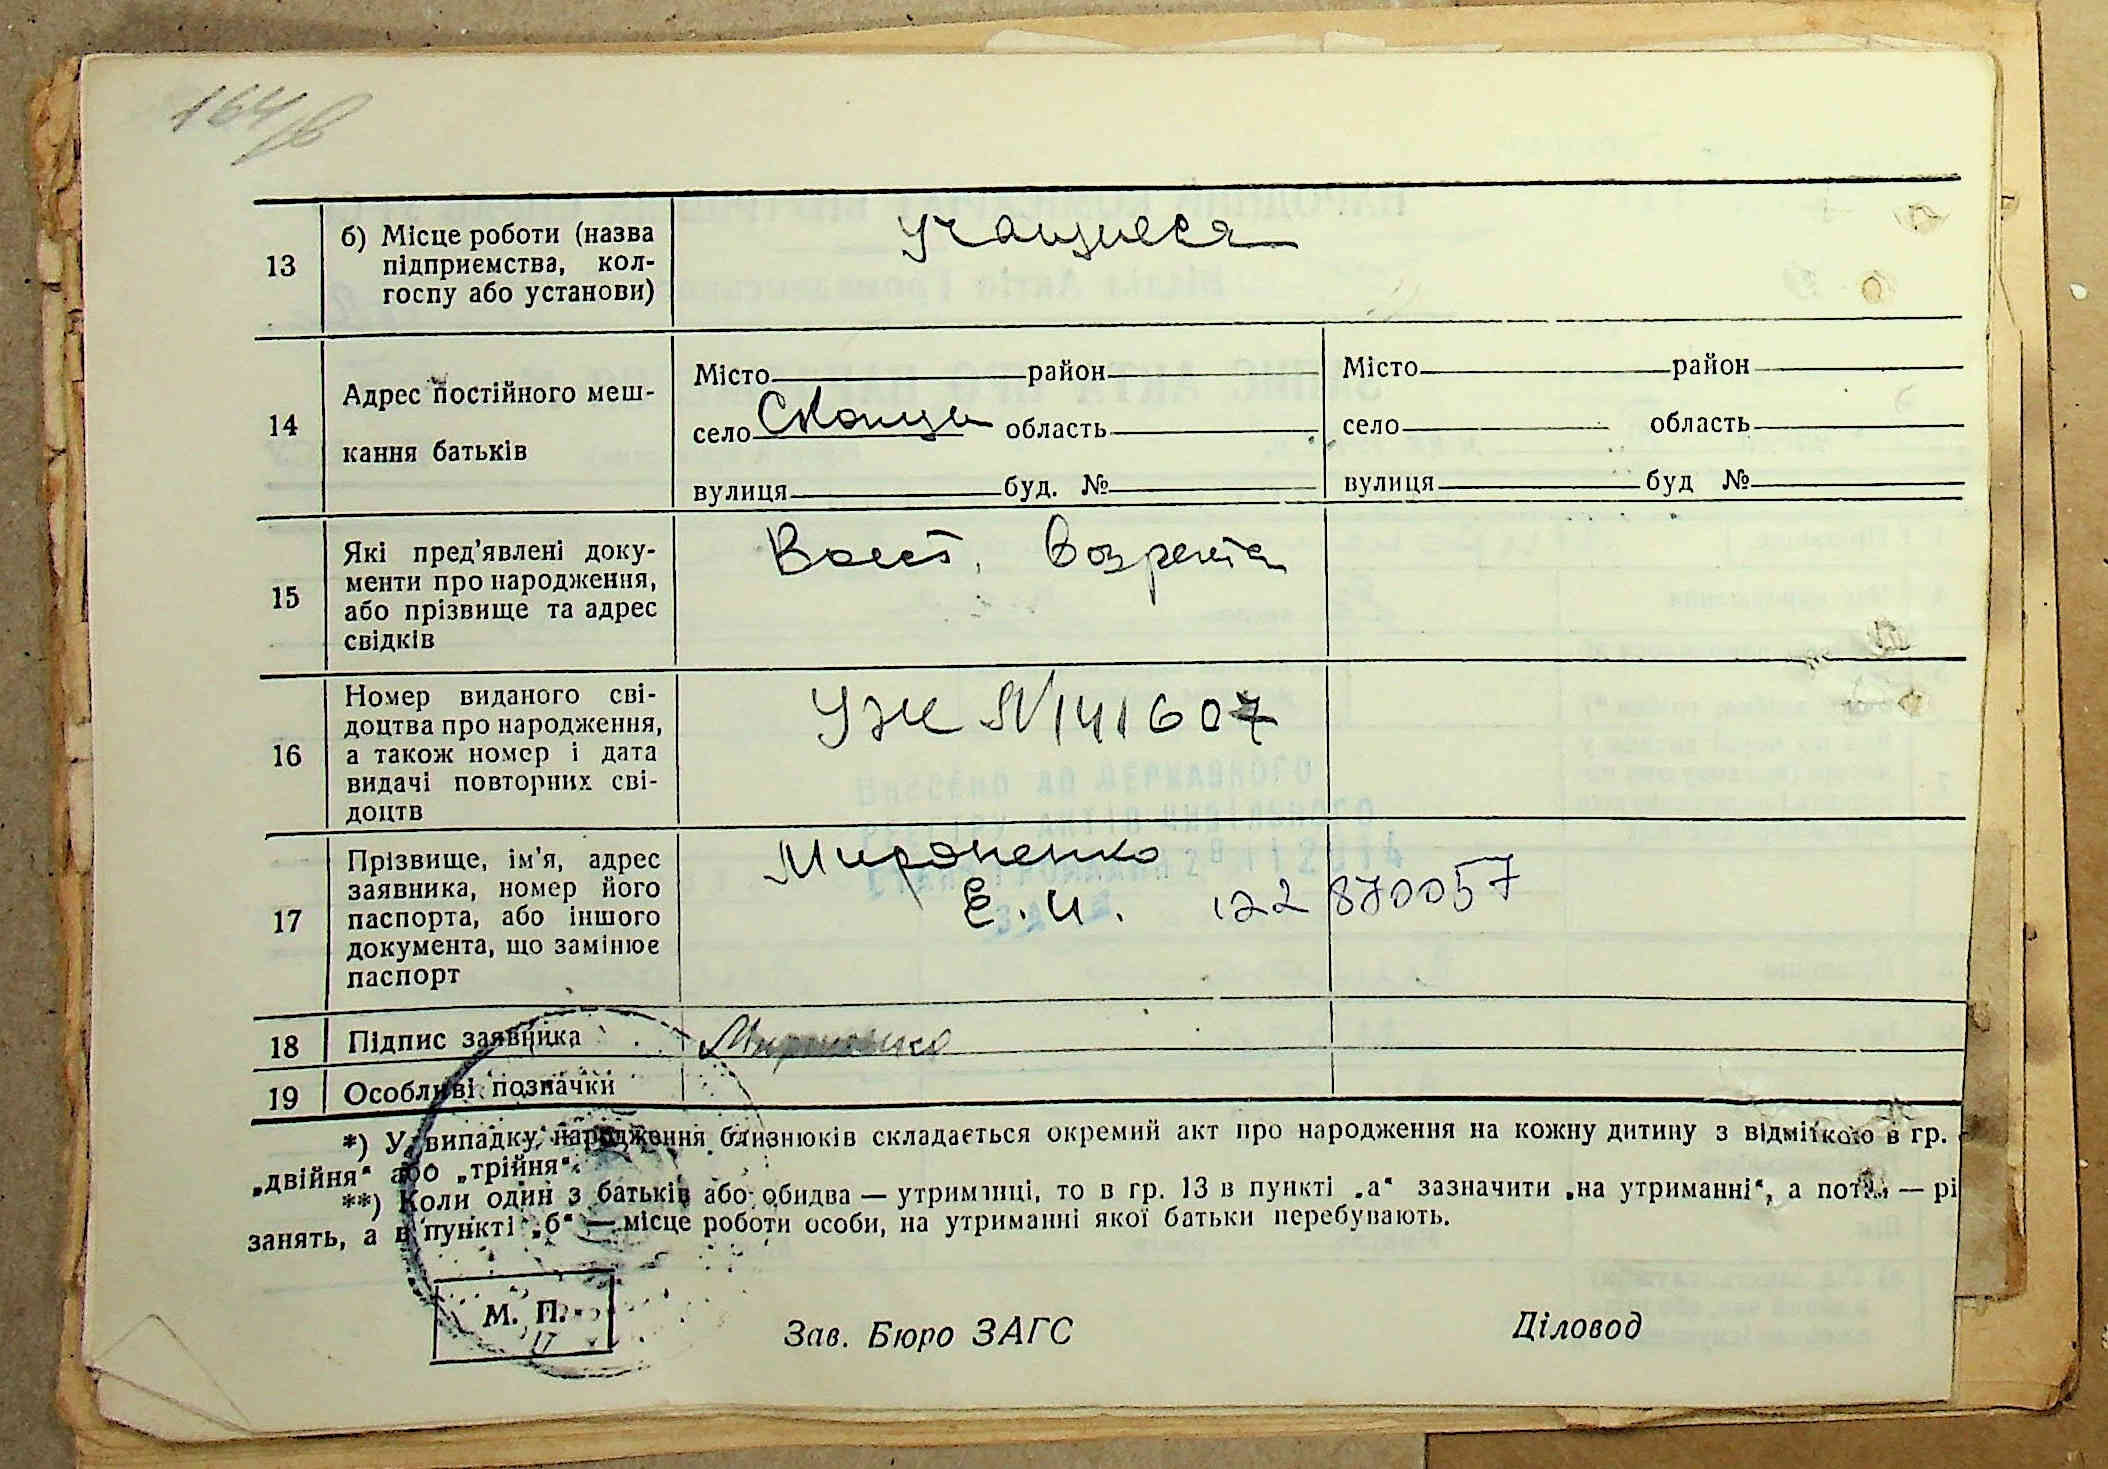 164/в
13
б) Місце роботи (назва
підприємства, кол-
госпу або установи)
Учащиеся
14
Адрес постійного меш-
кання батьків
Місто район
село область
вулиця буд. №
Місто район
село область
вулиця буд №
15
Які пред'явлені доку-
менти про народження,
або прізвище та адрес
свідків
возраста
16
Номер виданого сві-
доцтва про народження,
а також номер і дата
видачі повторних сві-
доцтв
УЖ №141607
ВНЕСЕНО ДО ДЕРЖАВНОГО
РЕЄСТРУ АКТІВ ЦИВІЛЬНОГО
СТАНУ ГРОМАДЯН
17
Прізвище, ім'я, адрес
заявника, номер його
паспорта, або іншого
документа, що замінює
паспорт
Мироненко
Е. И. 122 870057
18
Підпис заявника
Мироненко
19
Особливі позначки
*) У випадку народження близнюків складається окремий акт про народження на кожну дитину з відміткою в гр.
„двійня“ або „трійня“.
**) Коли один з батьків або обидва — утриманці, то в гр. 13 в пункті „а“ зазначити „на утриманні“, а потім — рі
занять, а в пункті „б“ — місце роботи особи, на утриманні якої батьки перебувають.
М. П.
Зав. Бюро ЗАГС
Діловод